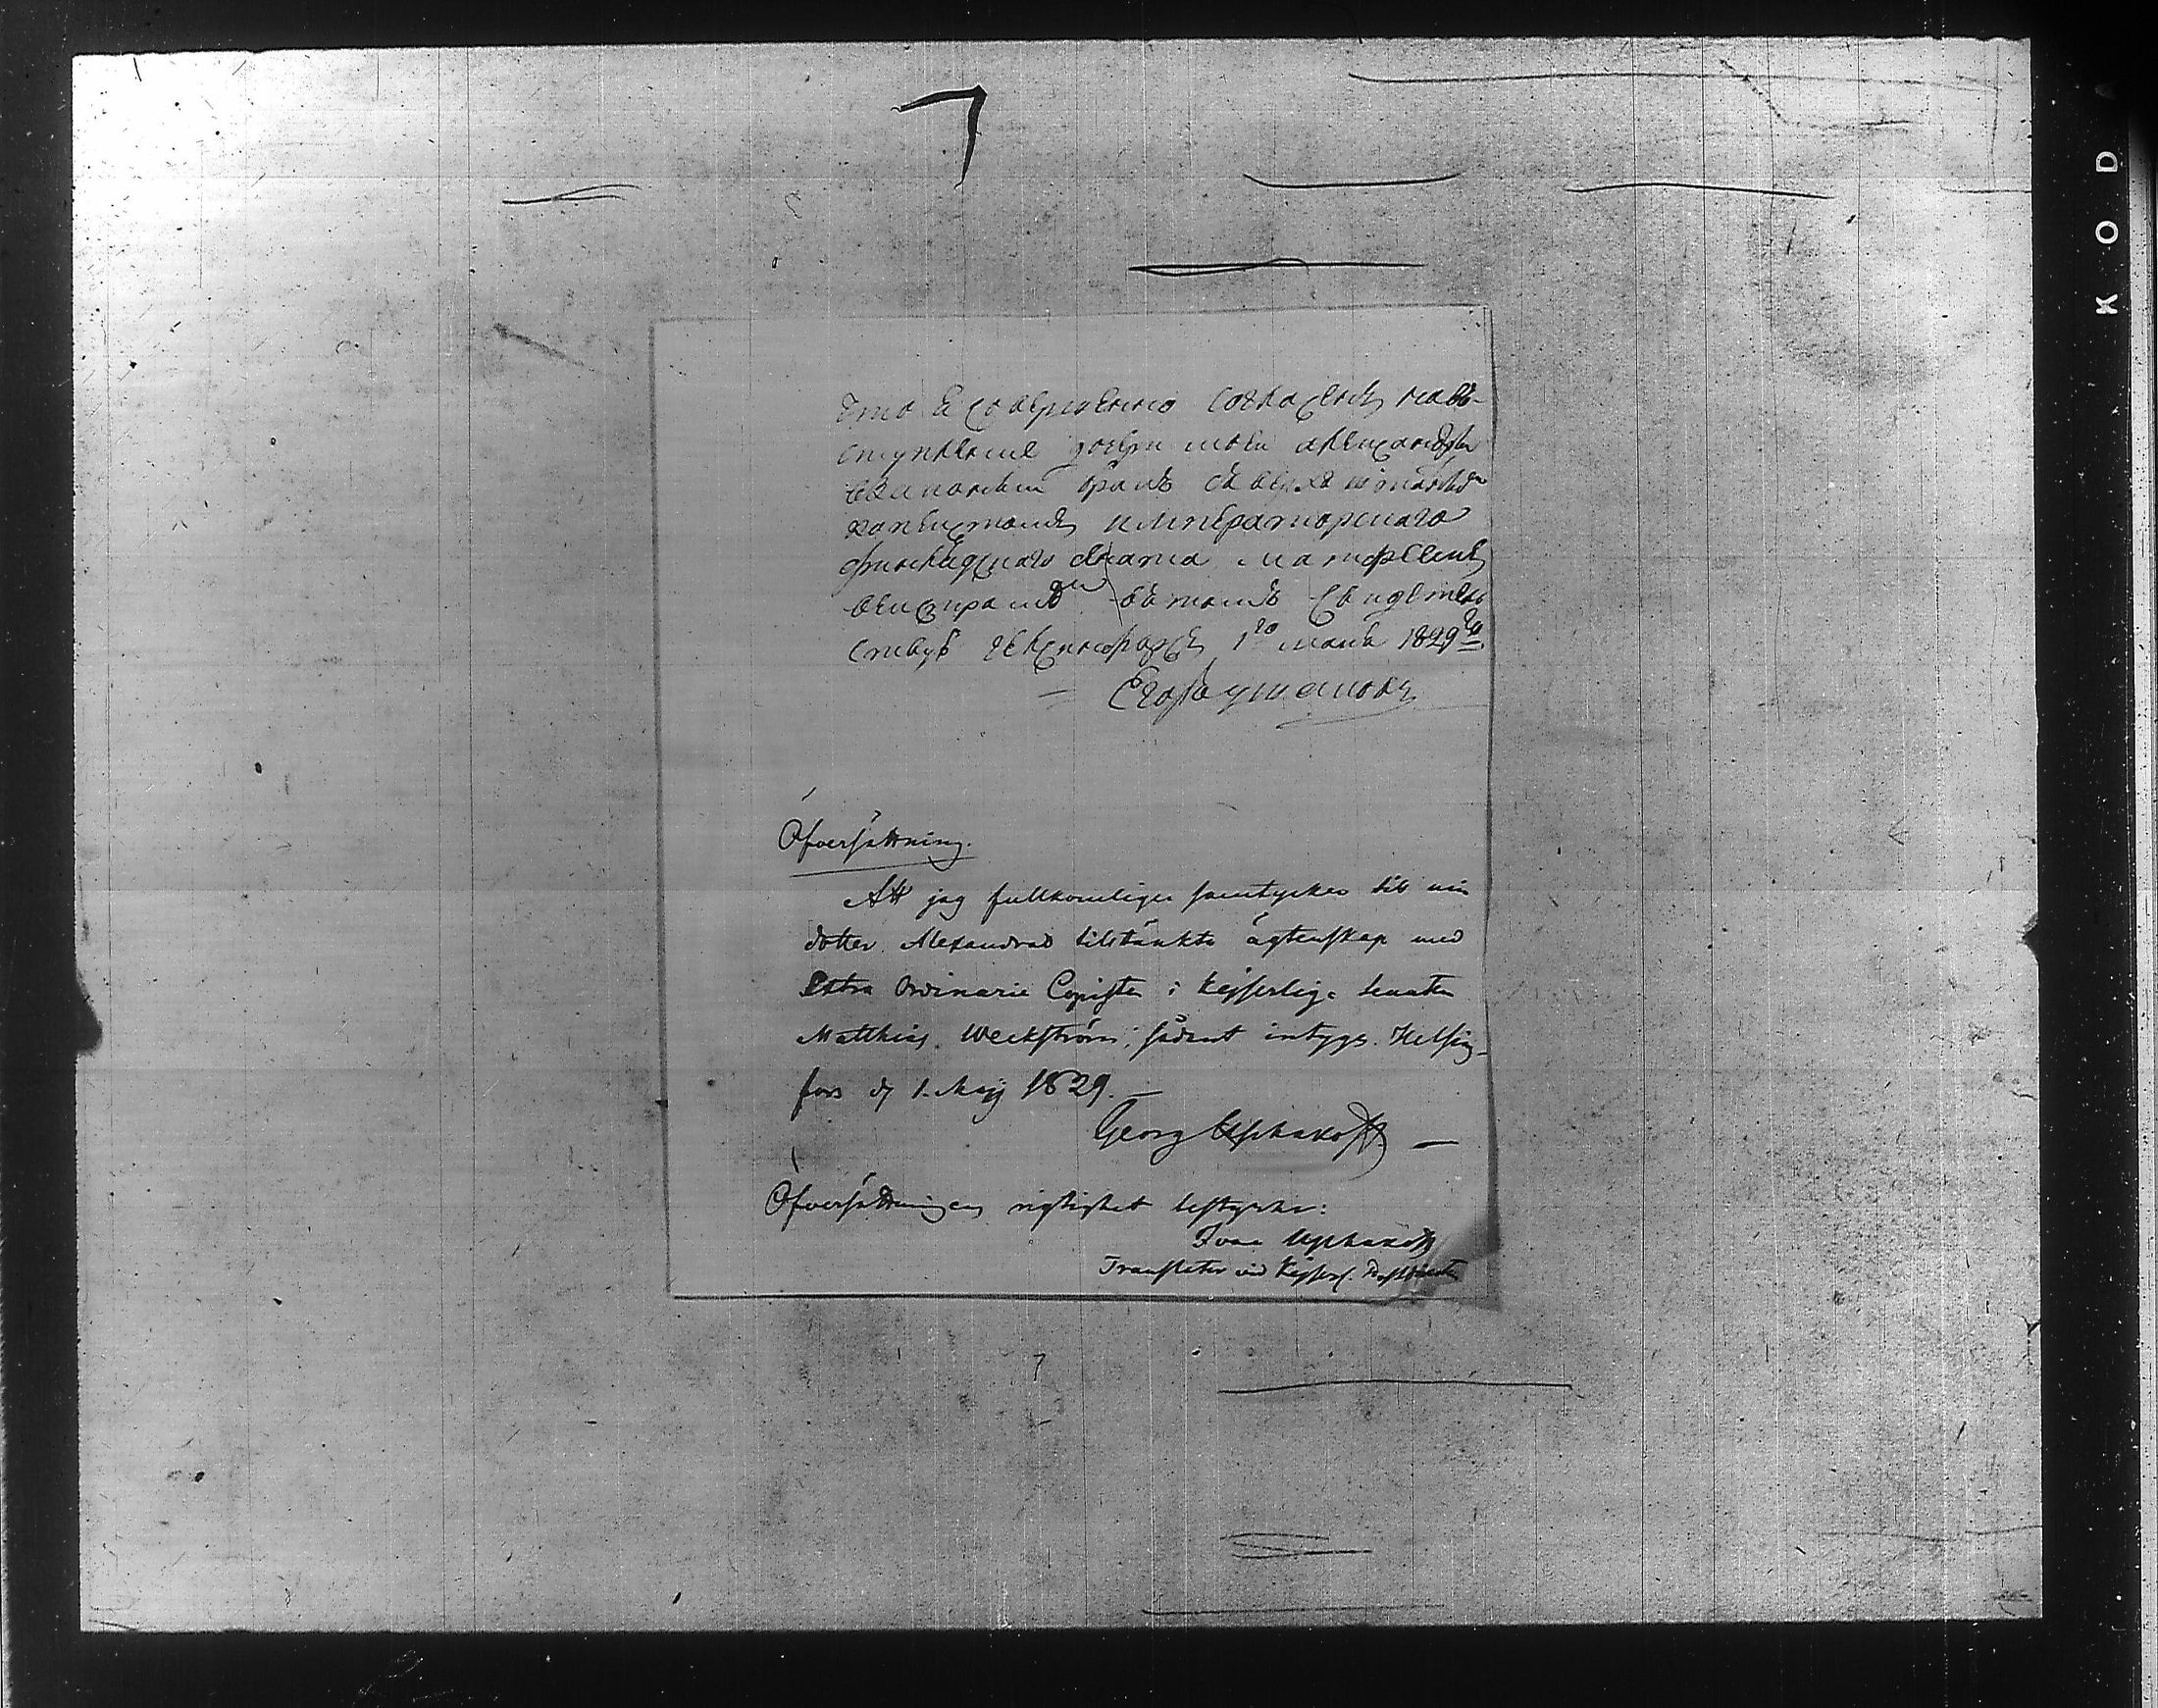 что я совершенно согласенъ на вѣ-
ступленіе дочери моей александры
въ законный бракъ
копеистомъ императорскаго
финлядскаго сената матфеемъ
векстрамо въ томъ свидетель
ствую гелсингфорсъ 1го маия 1829го
Егоръ ушаковъ
Öfversättning.
Att jag fullkomligen samtycker till min
dotter Alexandras tilltänkta ägtenskap med
Extra Ordinarie Copisten i Kejserliga Senaten
Matthias Weckström; sådant intygs. Helsing-
fors d. 1. Maij 1829.
Georg Uschakoff
Öfversättningens rigtighet bestyrker:
Ivan Uschakoff
Translator vid Kejserl.
KOD